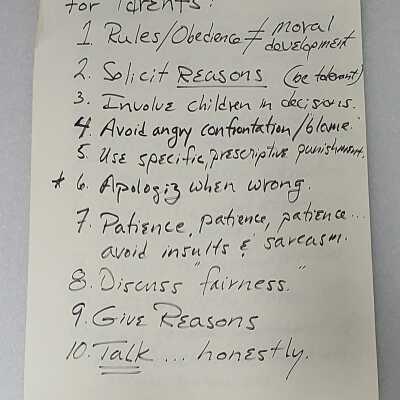 for Parents:
1. Rules/Obedience ≠ moral development
2. Solicit REASONS (be tolerant)
3. Involve children in decisions.
4. Avoid angry confrontation/blame.
5. Use specific, prescriptive punishment.
* 6. Apologiz when wrong.
7. Patience, patience, patience...
avoid insults & sarcasm.
8. Discuss "fairness."
9. Give Reasons
10. Talk ... honestly.